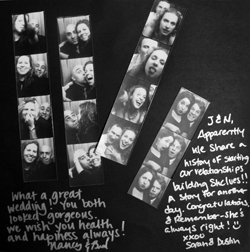 What a great
wedding! You both
looked gorgeous.
We wish you health
and happiness always!
Nancy &
J & N,
Apparently
We Share a
history of starting
our relationships
building Shelves!!
A Story for another
day. Congratulations
& Remember-She's
always right!
xxoo
Sara & Dude